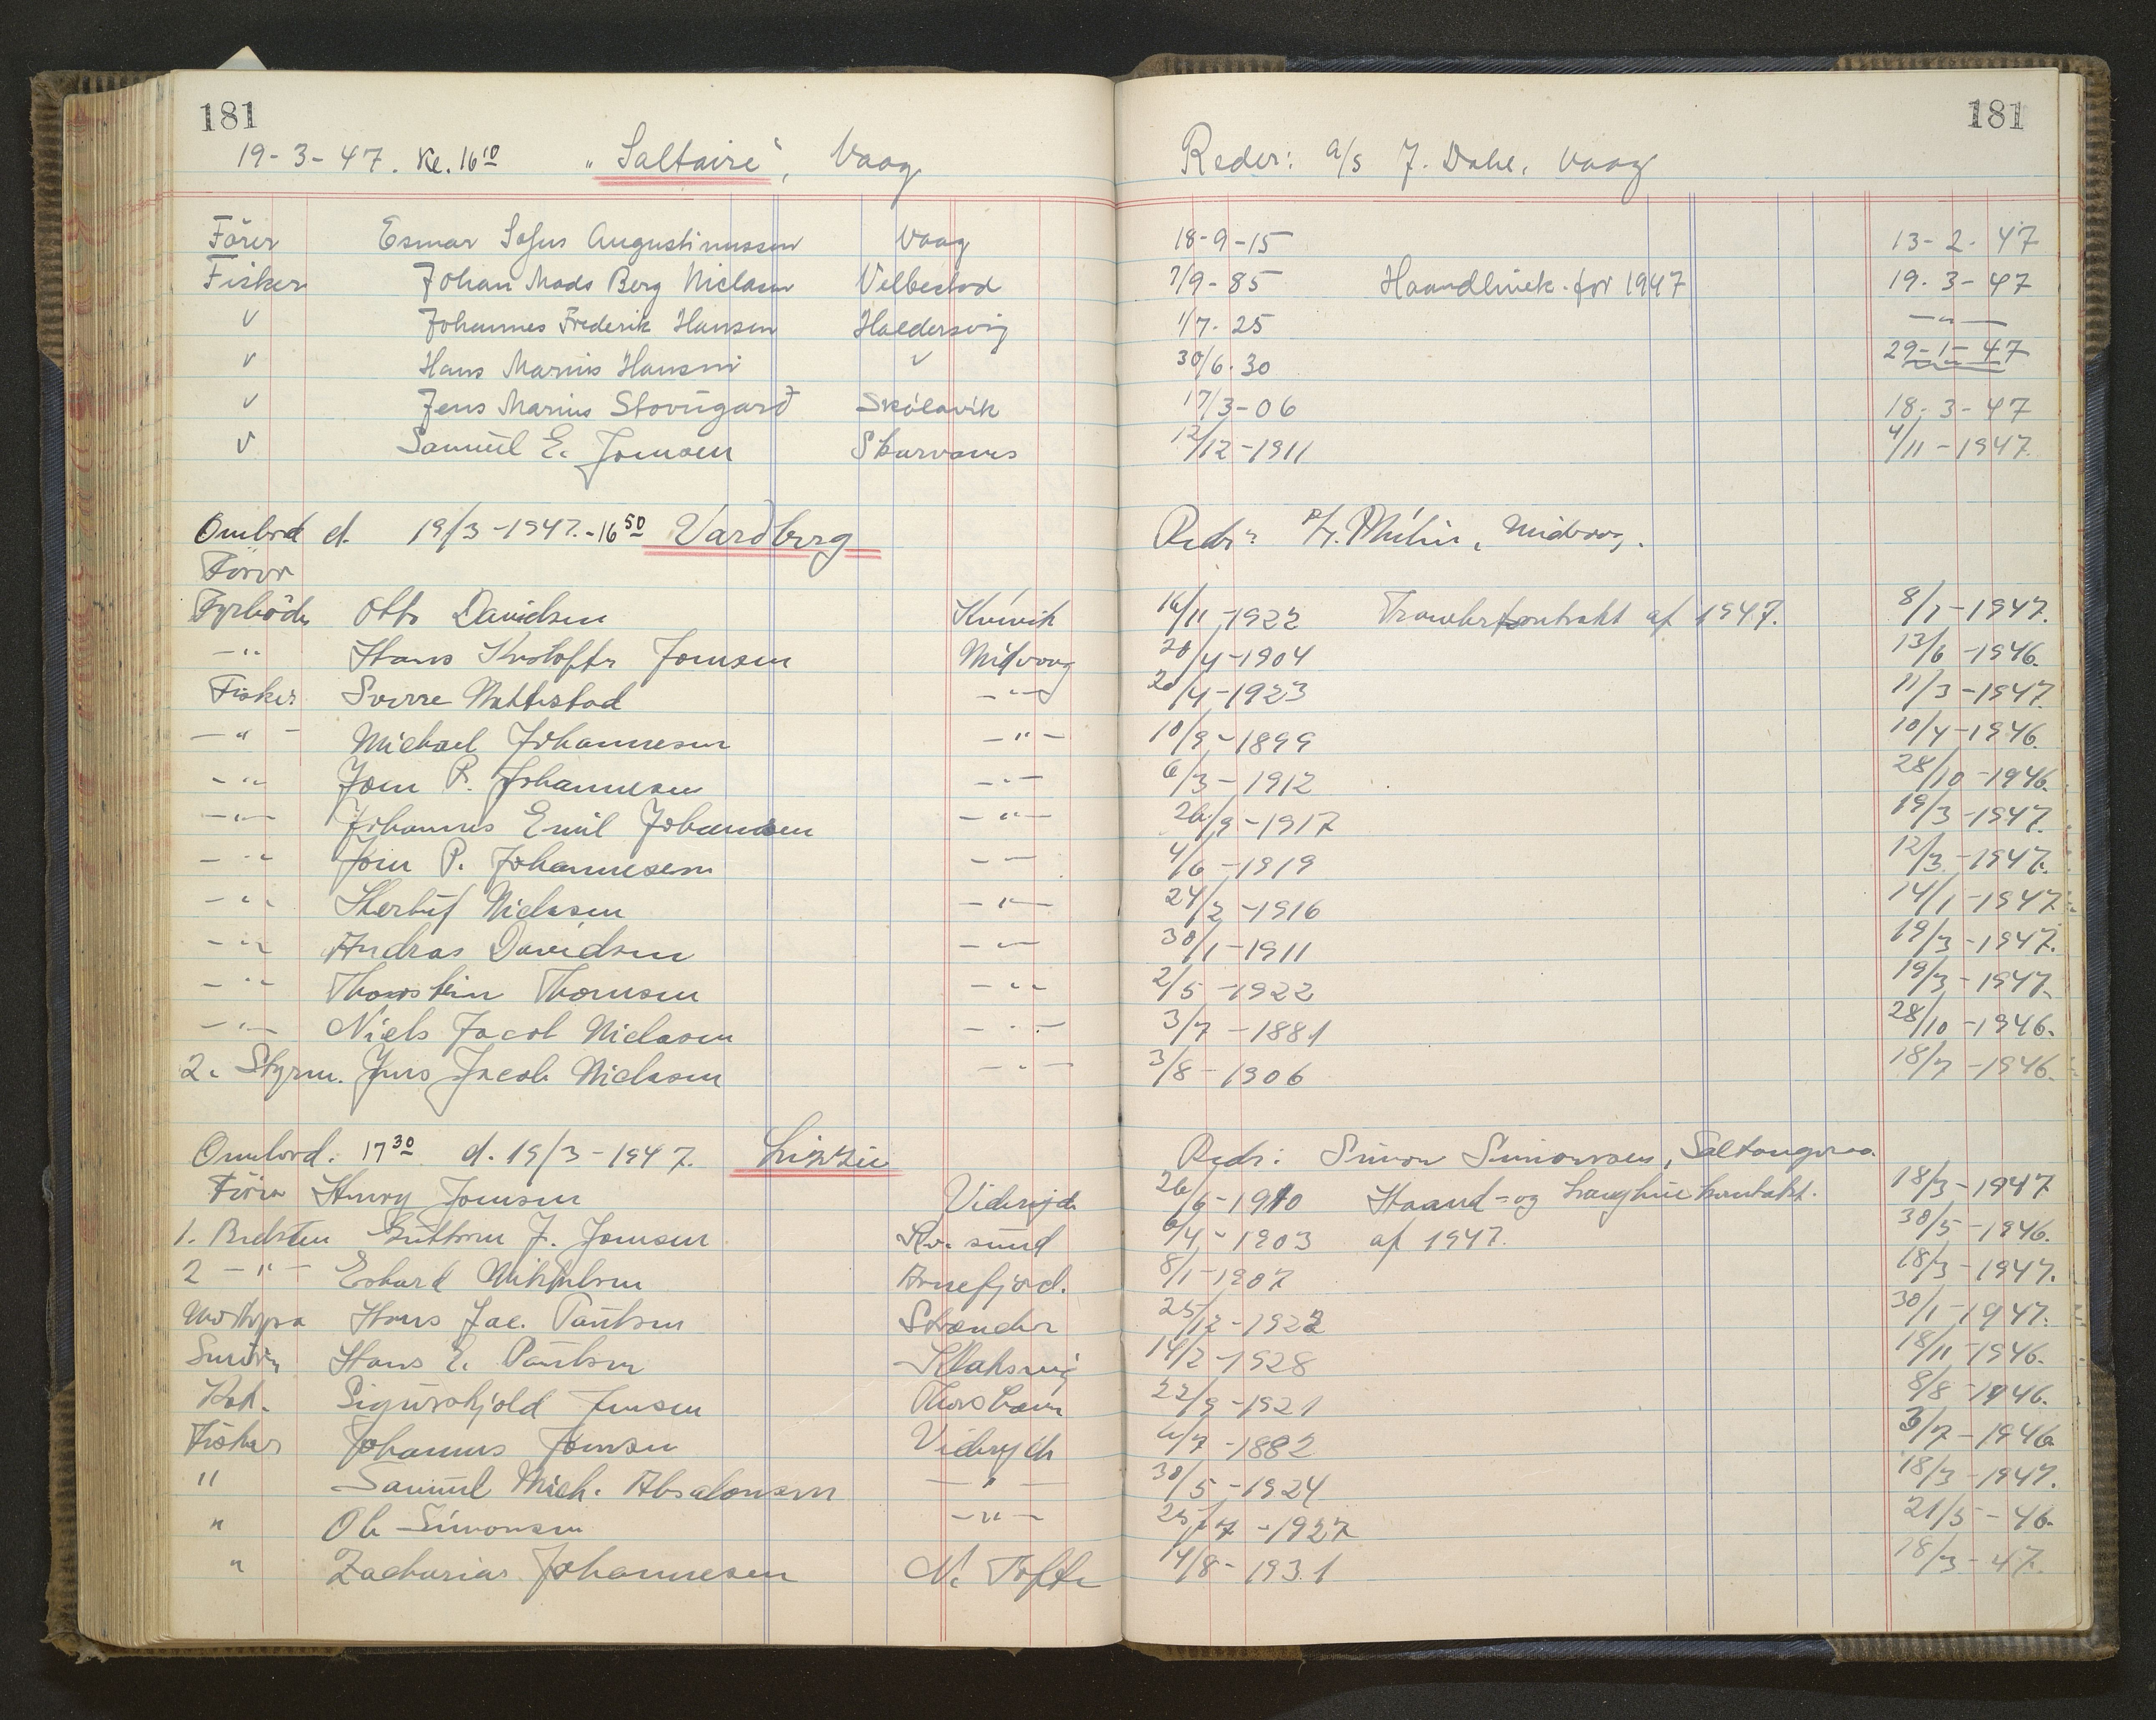 181 181
19-3-47. Kl. 16 10 "Saltaire", Vaag Reder: a/s J. Dahl, Vaag
Förer Esmar Sofus Augustinussen Vaag 18-9-15 13-2-47
Fisker Johan Mads Berg Niclasen Velbestad 7/9-85 Haandlinek. for 1947 19-3-47
v Johannes Frederik Hansen Haldersvig 1/7-25 -"-
v Hans Marius Hansen v 30/6-30 29-1-47
v Jens Marius Stovugarð Skálavik 17/3-06 18-3-47
v Samuel E. Joensen Skarvanes 12/12-1911 4/11-1947.
Ombord d. 19/3-1947.-16 50 Varðborg Redr: Midvaag.
Förer
Fyrböder Otto Davidsen Kvivik 16/11-1922 Trawlerkontrakt af 1947. 8/1-1947.
-"- Hans Kristoffer Joensen Midvaag 20/4-1904 13/6-1946.
Fisker Sverre Nattestad -"- 20/4-1923 11/3-1947.
-"- Michael Johannesen -"- 10/9-1899 10/4-1946.
-"- Joen P. Johannesen -"- 6/3-1912 28/10-1946.
-"- Johannes Emil Johannesen -"- 26/9-1917 19/3-1947.
-"- Joen P. Johannesen -"- 4/6-1919 12/3-1947.
-"- Niclasen -"- 24/2-1916 14/1-1947.
-"- Andras Davidsen -"- 30/1-1911 19/3-1947.
-"- Thorstein Thomsen -"- 2/5-1922 19/3-1947.
-"- Niels Jacob Niclasen -"- 3/7-1881 28/10-1946.
2. Styrm. Jens Jacob Niclasen -"- 3/8-1906 18/7-1946.
Ombord. 17 30 d. 19/3-1947. Lizzie Redr: Simon Simonsen, Saltangeraa.
Förer Henry Joensen Viderejde 26/6-1910 Haand- og Langlinekontrakt. 18/3-1947
1. Bedstem Guttorm J. Joensen Kv. sund 6/4-1903 af 1947. 30/5-1946.
2 -"- Eehard Mikkelsen Arnefjord. 8/1-1907 18/3-1947.
Motorpa Hans Jac. Paulsen Strender 25/12-1922 30/1-1947.
Smörer Hans E. Paulsen Klaksvig 14/2-1928 18/11-1946.
Kok. Sigurskjold Jensen Thorshavn 22/9-1921 8/8-1946.
Fisker Johannes Joensen Viderejde 4/7-1882 3/7-1946
" Samuel Mich. Absalonsen -"- 30/5-1924 18/3-1947.
" Ole Simonsen -"- 25/7-1927 21/5-46.
" Zacharias Johannesen N. Tofte 14/8-1931 18/3-47.